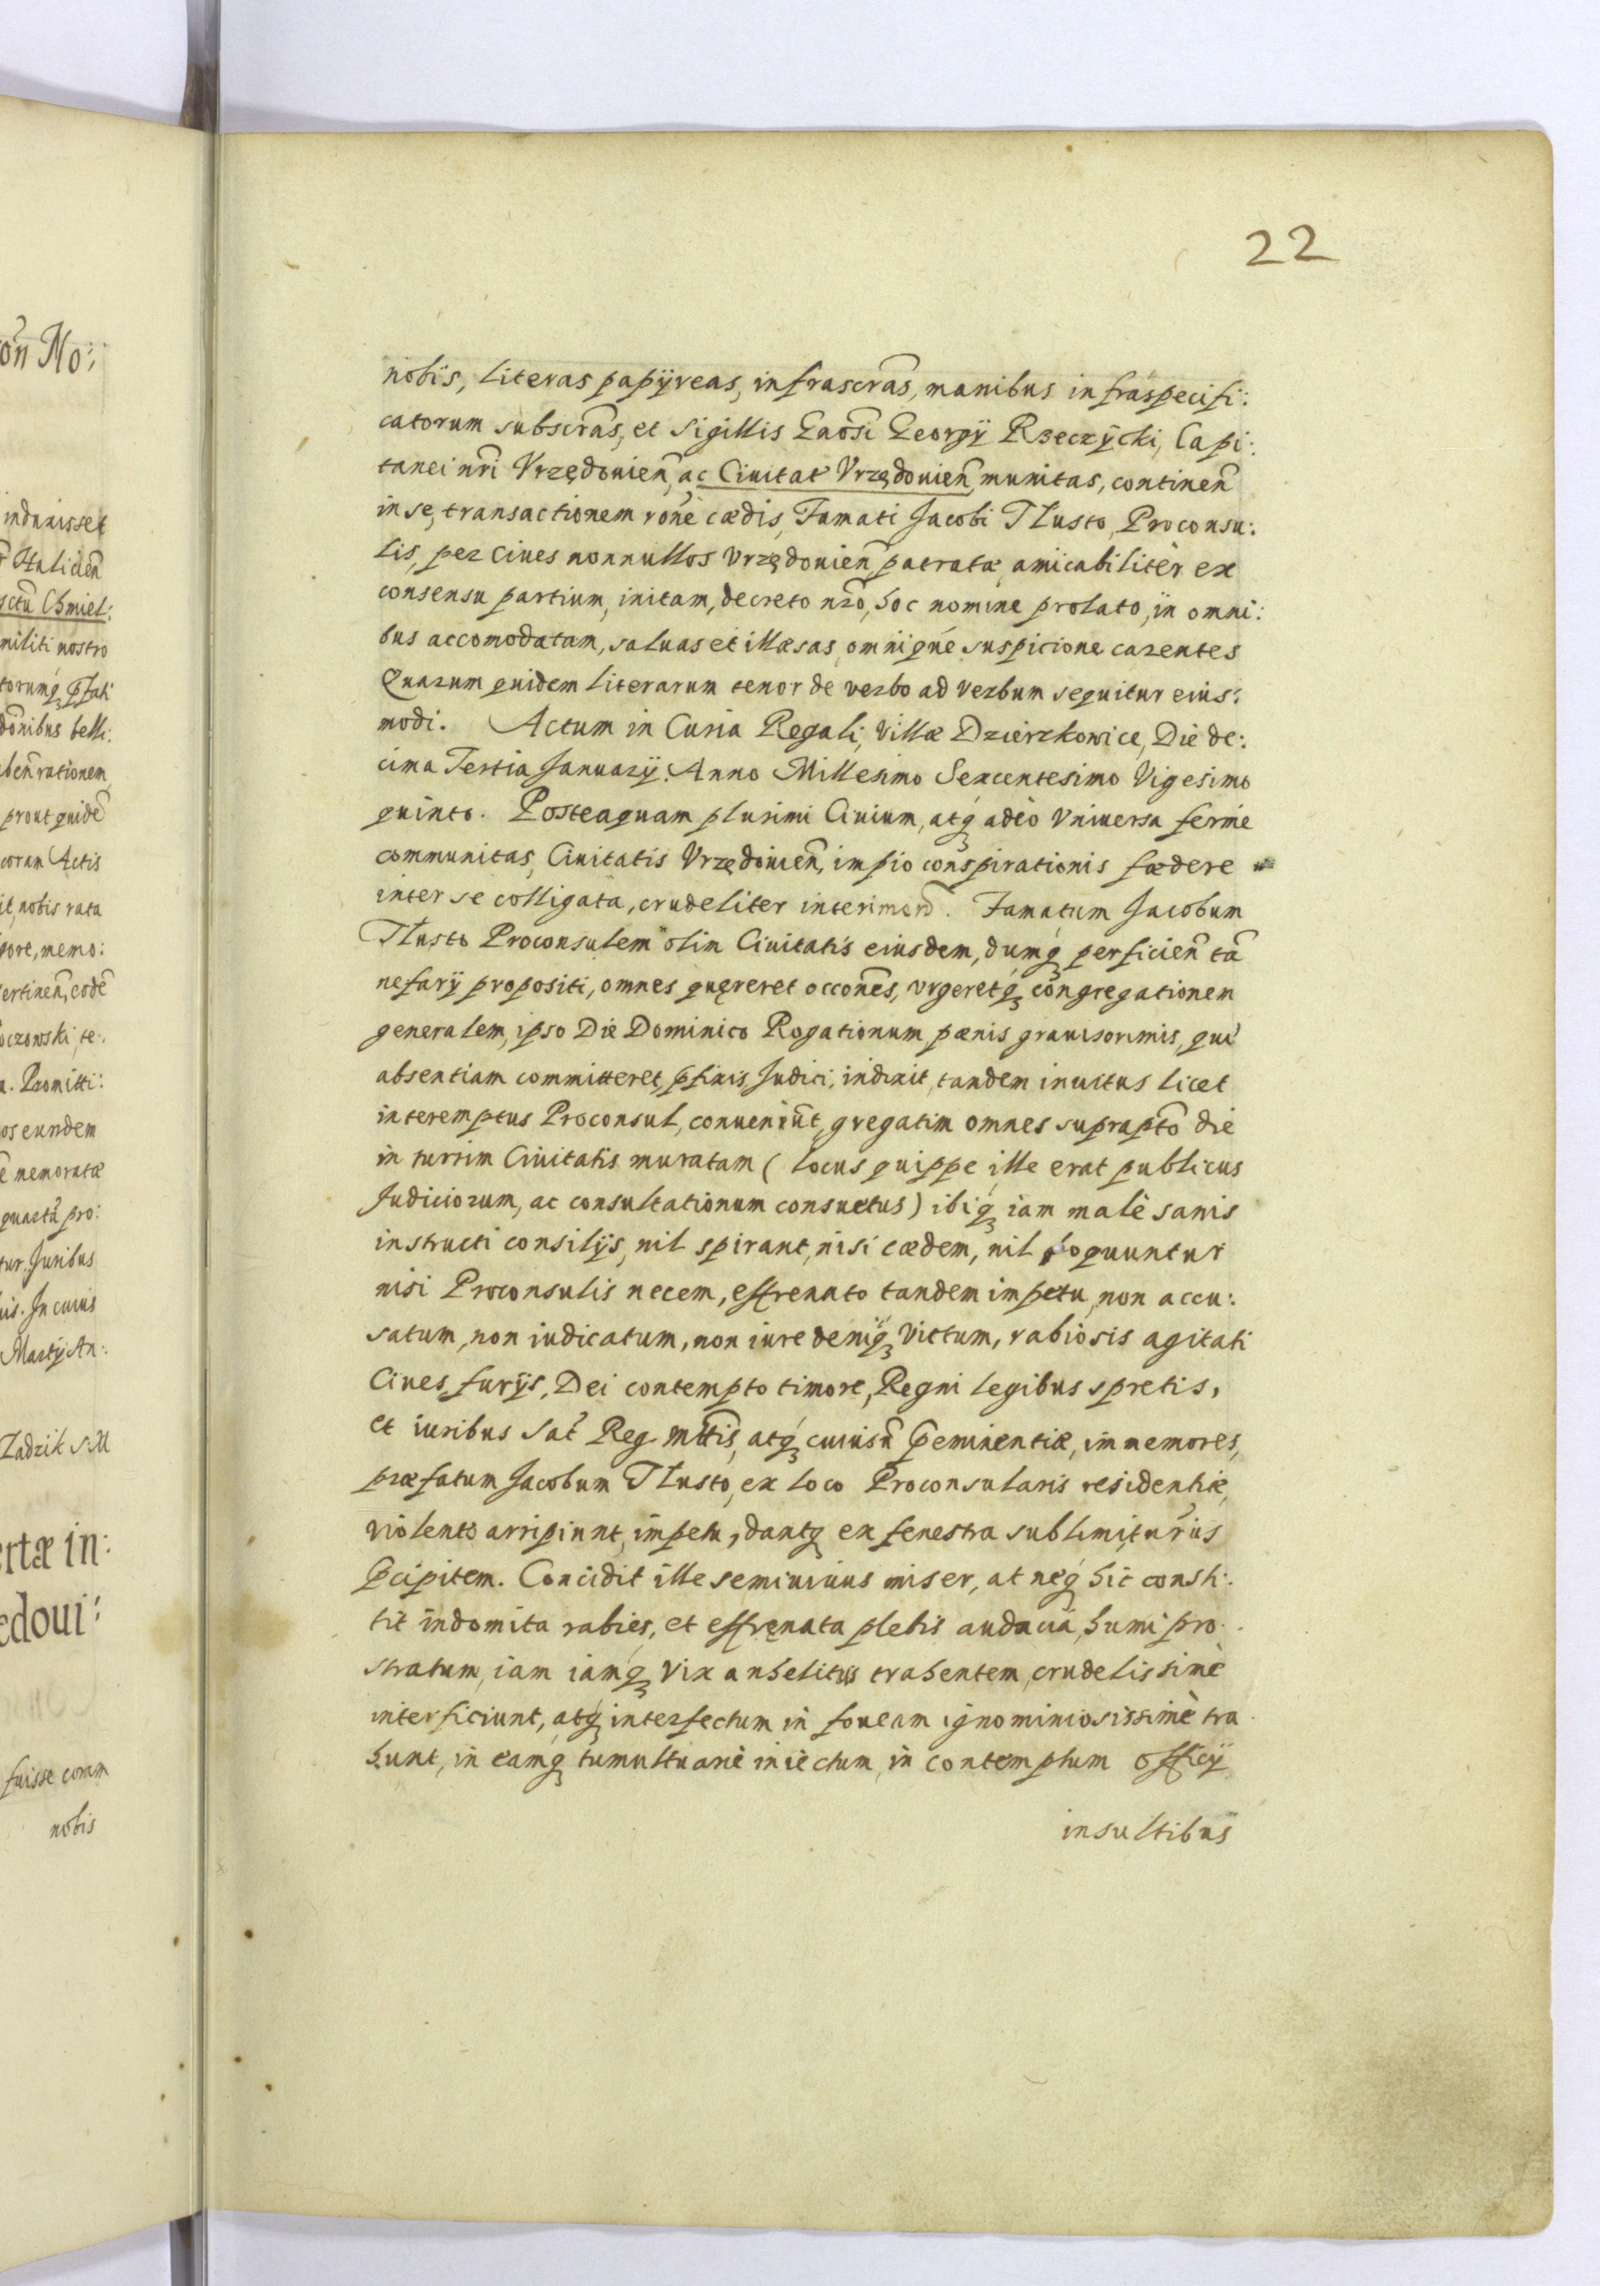 22
nobis, literas papÿreas, infrascras, manibus infraspecifi:
catorum subscras, et Sigillis Gnosi Georgÿ Rzeczÿcki, Capi:
tanei nri Vrzędouien, ac Ciuitat Vrzędouien munitas, continen
in se, transactionem rone cædis, Famati Jacobi Tłusto, Proconsu:
lis, per Ciues nonnullos Vrzędouien patratæ, amicabilitèr ex
consensu partium, initam, decreto nro, hoc nomine prolato, in omni:
bus accomodatam, saluas et illæsas, omniqué suspicione carentes
Quarum quidem literarum tenor de verbo ad verbum sequitur eius:
modi. Actum in Curia Regali, Villæ Dzierzkowice, Die de:
cima Tertia Januarÿ. Anno Millesimo Sexcentesimo Vigesimo
quinto. Posteaquam plurimi Ciuium, atq adeò Vniuersa fermè
communitas, Ciuitatis Vrzędouien, impio conspirationis fædere
inter se colligata, crudeliter interimend. Famatum Jacobum
Tłusto Proconsulem olim Ciuitatis eiusdem, dumq perficien ta
nefarÿ propositi, omnes quęreret occones, vrgeretq congregationem
generalem, ipso Die Dominico Rogationum pænis grauissimis, qui
absentiam committeret, Judici, indixit, tandem inuitus licet
interemptus Proconsul, conueniut, gregatim omnes suprapto die
in turrim Ciuitatis muratam (locus quippe ille erat publicus
Judiciorum, ac consultationum consuetus) ibiq iam malè sanis
instructi consilÿs, nil spirant, nisi cædem, nil loquuntur
nisi Proconsulis necem, effrenato tandem impetu, non accu:
satum, non iudicatum, non iure deniq Victum, rabiosis agitati
Ciues furÿs, Dei contempto timore, Regni legibus spretis,
et iuribus Sac Reg Mttis, atq cuiusu Peminentiæ, immemores,
præfatum Jacobum Tłusto, ex loco Proconsularis residentiæ,
violento arripiunt, impetu, dantq ex fenestra sublimi,
Pcipitem. Concidit ille semiuiuus miser, at neq hic consti:
tit indomita rabies, et effrenata plebis audacia, humi pro:
stratum, iam iamq Vix anhelitus trahentem, crudelissimè
interficiunt, atq interfectum in foueam ignominiosissimè tra
hunt, in eamq tumultuariè iniectum, in contemptum officÿ
insultibus
on No:
induxisset
Halicien
Chmiel:
militi nostro
donibus belli:
rationem
prout quide
coram Actis
nobis rata
memo:
te:
Promitti:
os eundem
memoratæ
pro:
Juribus
In cuius
Martÿ An:
Zadzik S:M
ertæ in:
edoui:
fuisse coram
nobis